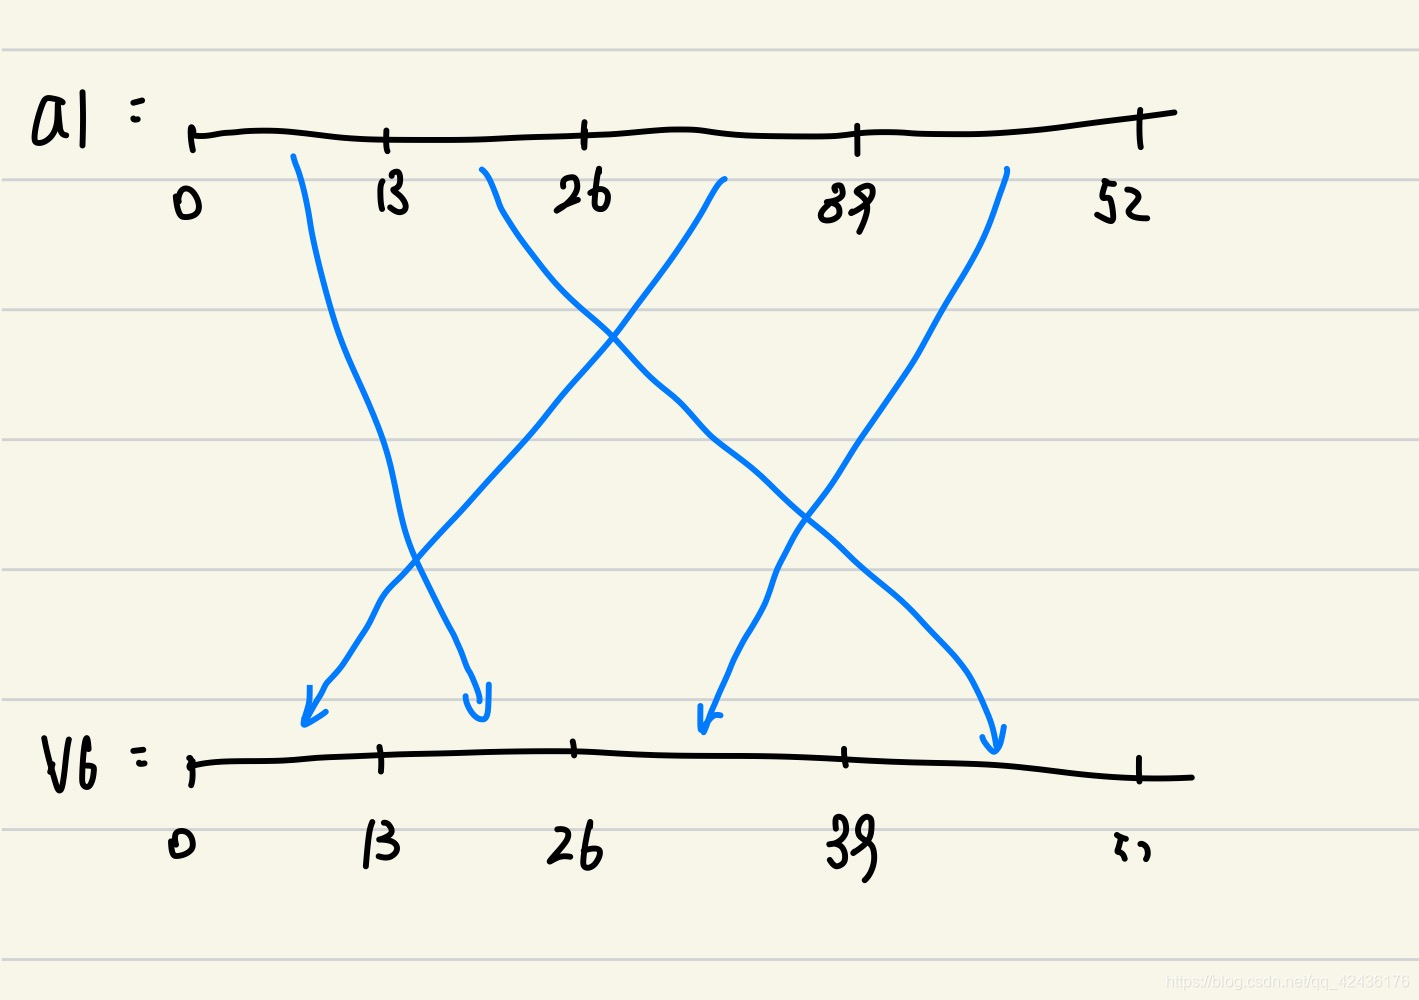 a1 =
0 13 26 39 52
V6 =
0 13 26 39
https://blog.csdn.net/qq_42436176